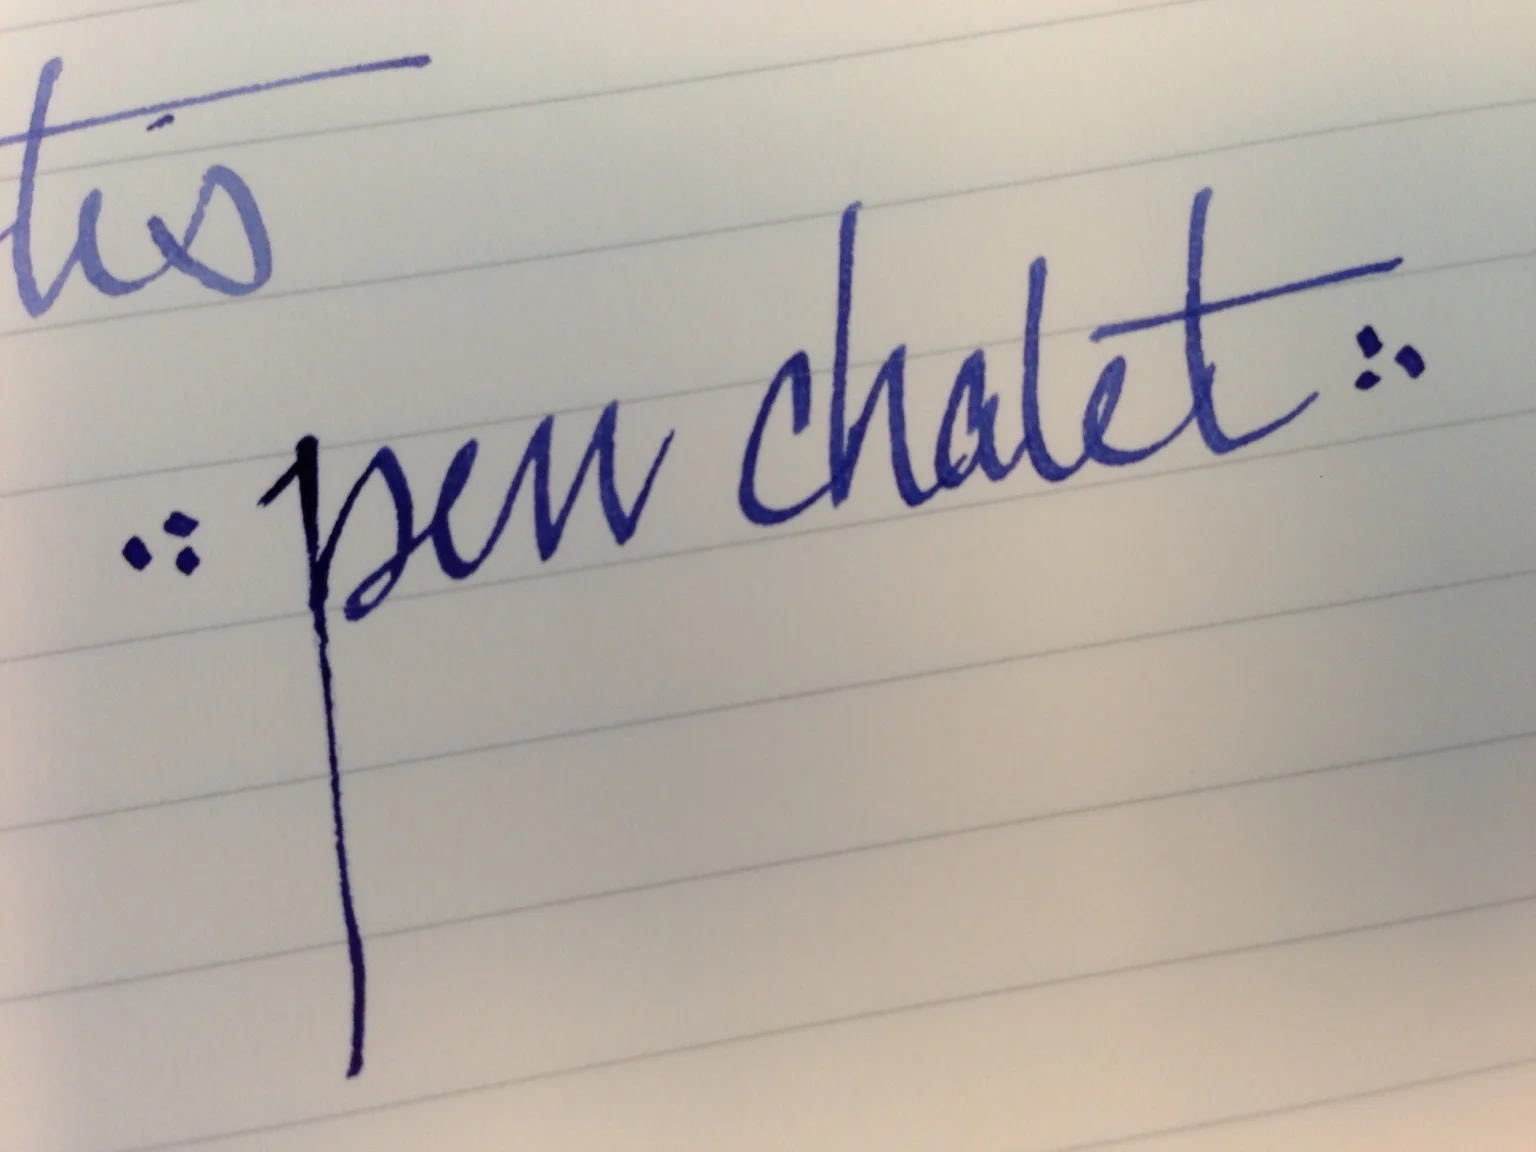 tis
pen chalet